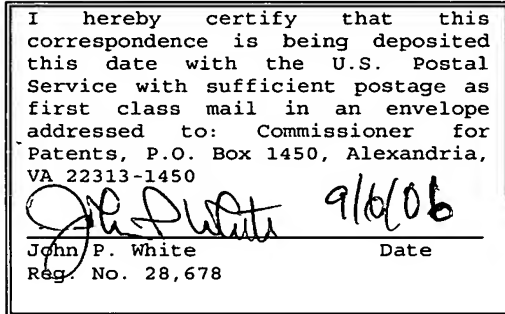 I hereby certify that this
correspondence is being deposited
this date with the U.S. Postal
Service with sufficient postage as
first class mail in an envelope
addressed to: Commissioner for
Patents, P.O. Box 1450, Alexandria,
VA 22313-1450
John P White 9/6/06
John P. White Date
Reg. No. 28,678